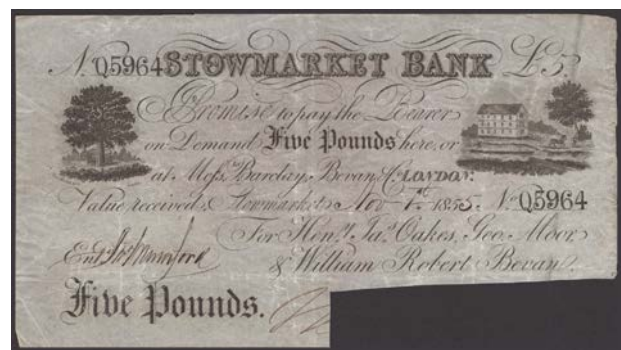 No. Q5964 STOWMARKET BANK £5.
I Promise to pay the Bearer
on Demand Five Pounds here, or
at Messrs. Barclay, Bevan & Co. LONDON.
Value received, Stowmarket Nov 1st 1855. No. Q5964
For Henry Jas. Oakes, Geo. Moor,
Entd & William Robert Bevan.
Five Pounds.